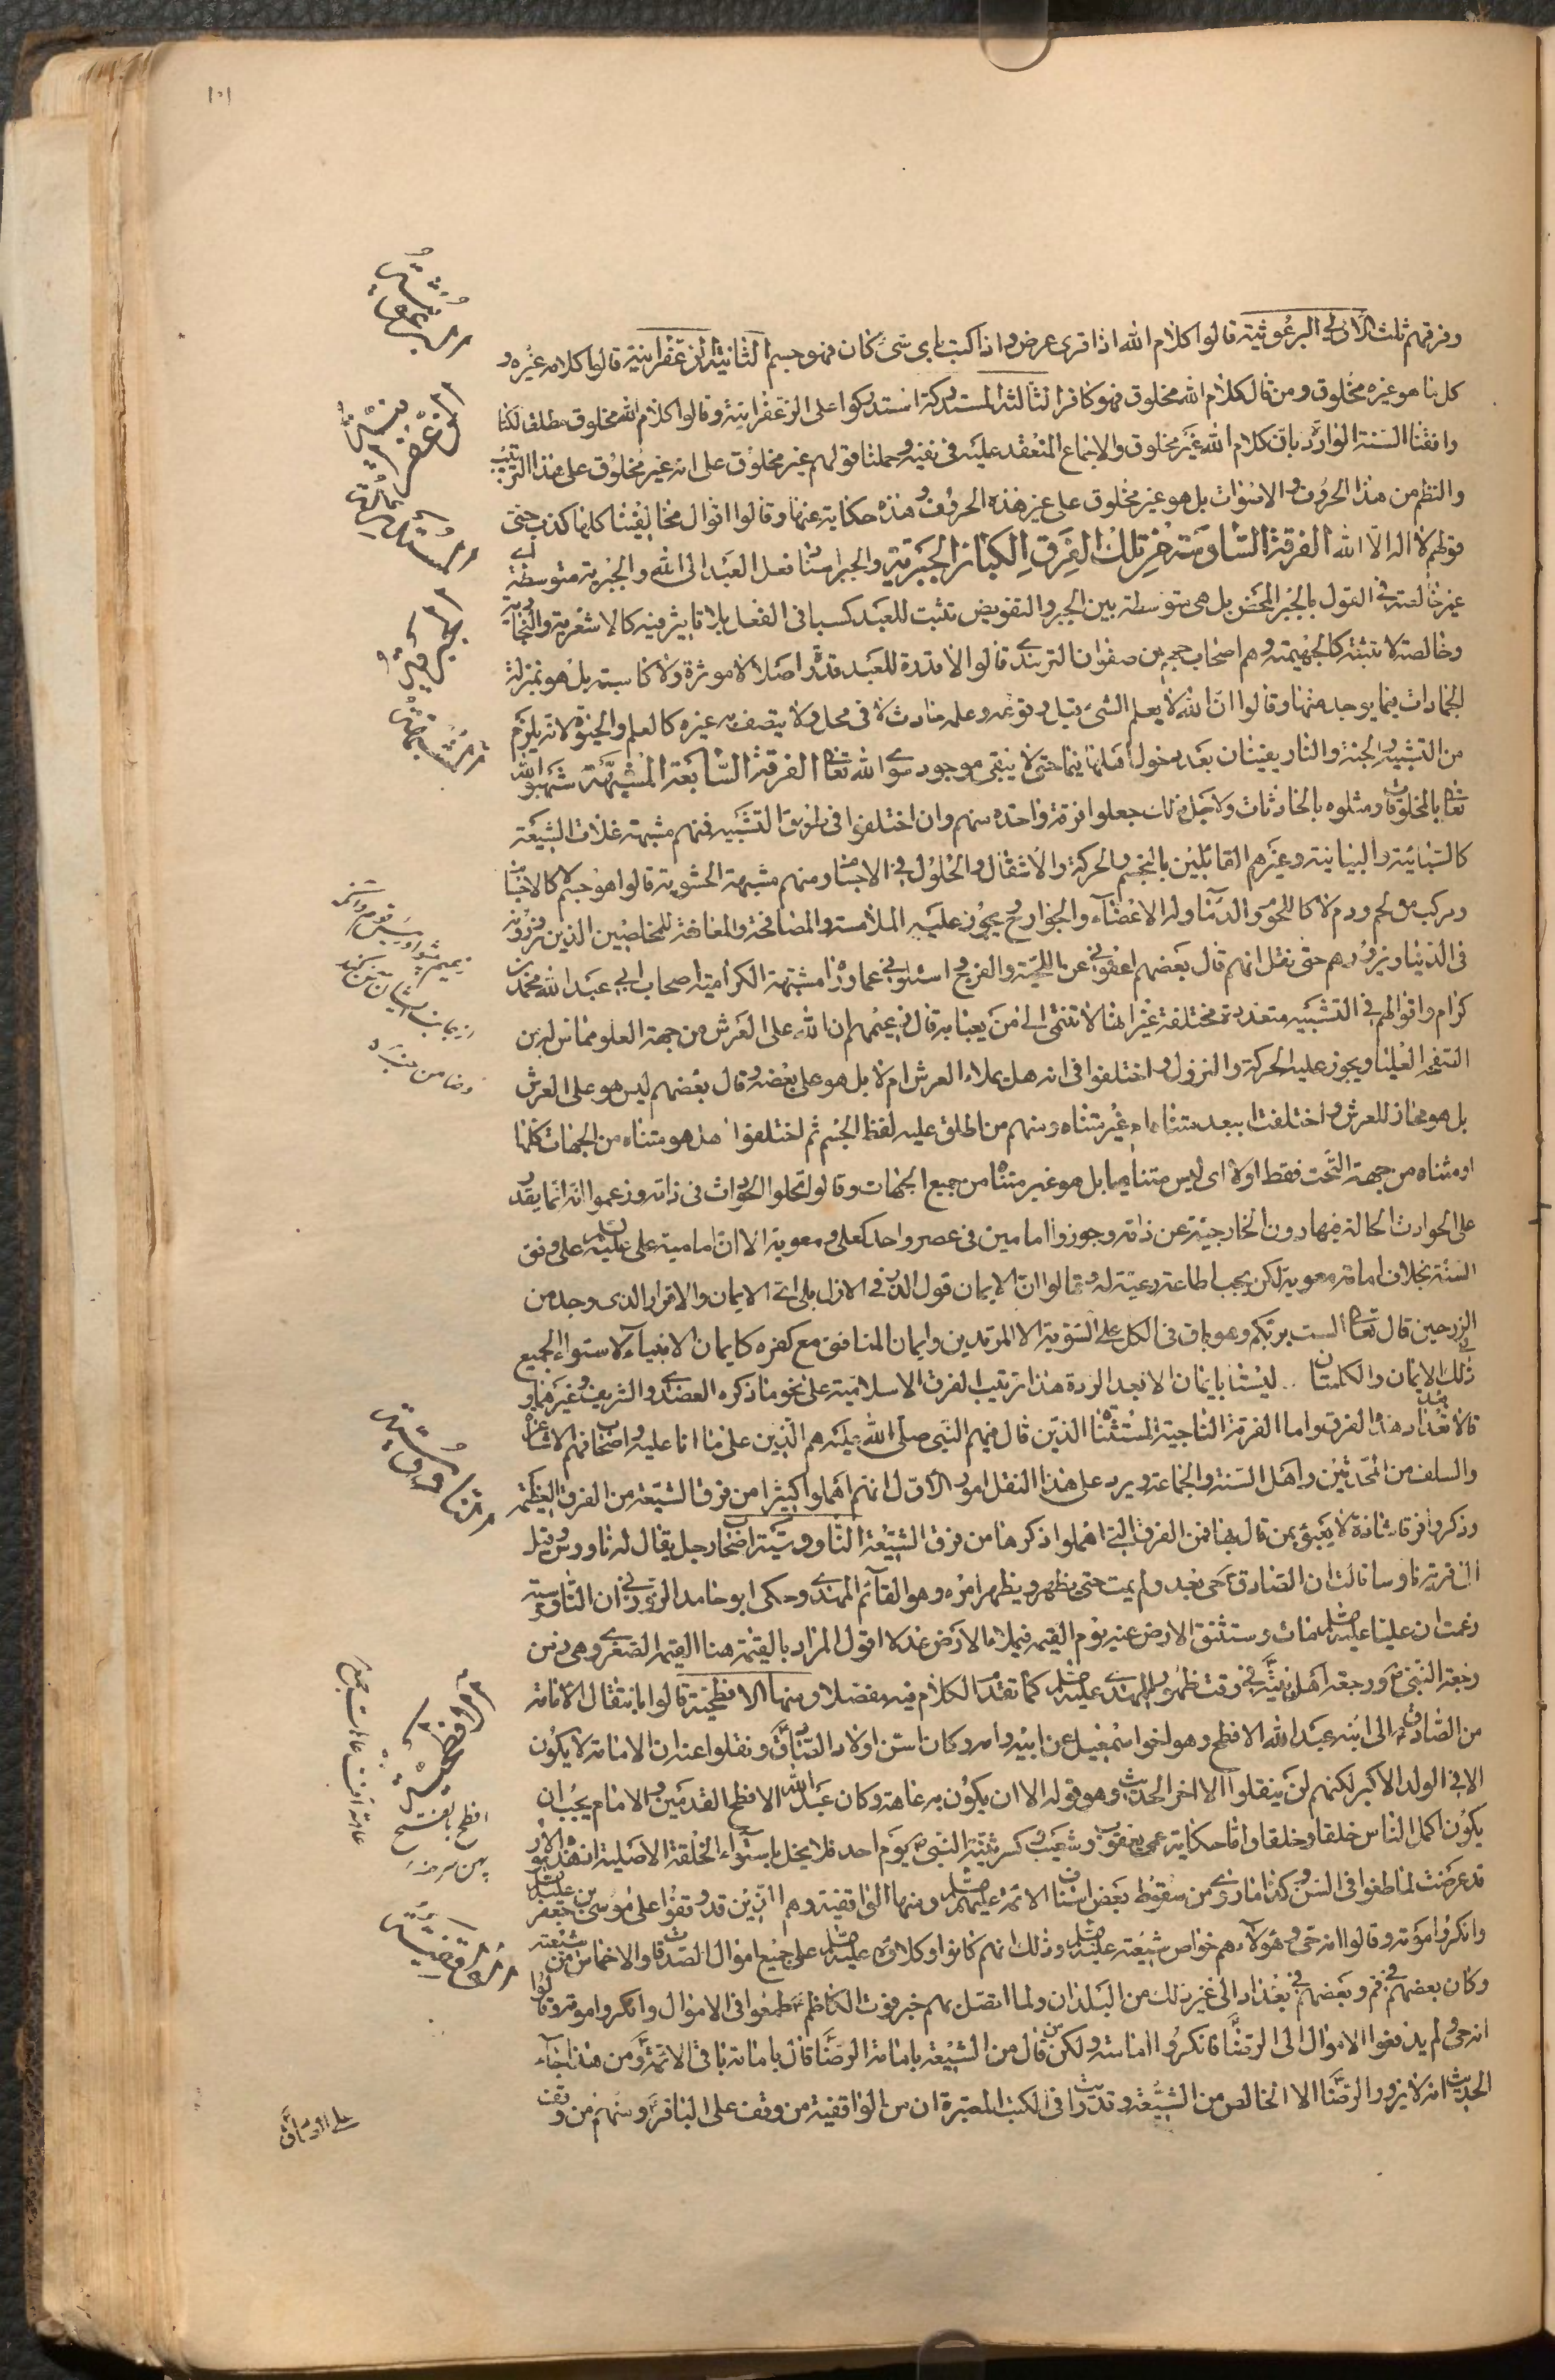 ١٠١
وفرقهم ثلث الاولى البرغوثية قالوا كلام الله اذا قرى عرض واذا كتب باى شئ كان فهو جسم الثانية الزعفرانية قالوا كلامه غيره و
كل ما هو غيره مخلوق ومن قال كلام الله مخلوق فهو كافر الثالثة المستدركة استدركوا على الزعفرانية وقالوا كلام الله مخلوق مطلقا لكنا
وافقنا السنة الواردة بان كلام الله غير مخلوق والاجماع المنعقد عليه في نفيه وحملنا قولهم غير مخلوق على انه غير مخلوق على هذا الترتيب
والنظم من هذا الحروف والاصوات بل هو غير مخلوق على غير هذه الحروف وهذه حكاية عنها وقالوا اقوال مخالفينا كلها كذب حتى
قولهم لا اله الا الله الفرقة السادسة من تلك الفرق الكبار الجبرية والجبر اسناد فعل العبد الى الله والجبرية متوسطة اى
غير خالصة في القول بالجبر المحض بل هى متوسطة بين الجبر والتفويض تثبت للعبد كسبا في الفعل بلا تاثير فيه كالاشعرية والنجارية
وخالصة لا تثبته كالجهيمة وهم اصحاب جهم بن صفوان الترمذى قالوا لا قدرة للعبد قدرة اصلا لا موثرة ولا كاسبة بل هو بمنزلة
الجمادات فيما يوجد منها وقالوا ان الله لا يعلم الشئ قبل وقوعه وعلمه حادث لا في محل ولا يتصف به غيره كالعلم والحيوة لانه يلزم
من التشبيه والجنة والنار يفنيان بعد دخول اهلهما فيهما حتى لا يبقى موجود سوى الله تعالى الفرقة السابعة المشبهة شبهوا الله
تعالى بالمخلوقات ومثلوه بالحادثات ولاجل ذلك جعلوا فرقة واحدة منهم وان اختلفوا في طريق التشبيه فمنهم مشبهة غلات الشيعة
كالسبائية والبيانية وغيرهم القائلين بالتجسم والحركة والانتقال والحلول في الاجسام ومنهم مشبهة الحشوية قالوا هو جسم لا كالاجسام
ومركب من لحم ودم لا كاللحوم والدماء وله الاعضاء والجوارح يجوز عليه الملامسة والمصافحة والمعانقة للمخلصين الذين يزورونه
في الدنيا ويزورهم حتى نقل انهم قال بعضهم اعفوني عن اللحية والفرج واسئلوني عما وراء ذا مشبهة الكرامية اصحاب ابى عبد الله محمد بن
كرام واقوالهم في التشبيه متعددة مختلفة غير انها لا تنتهى الى من يعبا به قال زعيمهم ان الله على العرش من جهة العلو مماس له من
الصفحة العليا ويجوز عليه الحركة والنزول واختلفوا في انه هل يملاء العرش ام لا بل هو على بعضه وقال بعضهم ليس هو على العرش
بل هو محاذ للعرش واختلفت ببعد متناه او غير متناه ومنهم من اطلق عليه لفظ الجسم ثم اختلفوا هل هو متناه من الجهات كلها
او متناه من جهة التحت فقط اولا اى ليس متناهيا بل هو غير متناه من جميع الجهات وقالوا تحلوا الحوادث في ذاته وزعموا انه انما يقدر
على الحوادث الحالة فيها دون الخارجية عن ذاته وجوزوا امامين في عصر واحد كعلى ومعوية الا ان امامية على عليه السلم على وفق
السنة بخلاف امامة معوية لكن يجب اطاعة رعيته له وقالوا ان الايمان قول الذر في الازل بلى اى الايمان والاقرار الذى وجد من
الذر حين قال تعالى الست بربكم وهو باق في الكل على السوية الا المرتدين وايمان المنافق مع كفره كايمان الانبياء لاستواء الجميع
في ذلك الايمان والكلمتان ليستا بايمان الا بعد الردة هذا ترتيب الفرق الاسلامية على نحو ما ذكره العضدى والشريف وغيرهما و
قالا بعد تعداد هذه الفرق واما الفرقة الناجية المستثناة الذين قال فيهم النبى صلى الله عليه هم الذين على ما انا عليه واصحابى فهم الاشاعرة
والسلف من المحدثين واهل السنة والجماعة ويرد على هذا النقل امور الاول انهم اهملوا كثيرا من فرق الشيعة من الفرق العظيمة
وذكروا فرقا شاذة لا يعبؤ بمن قال بها فمن الفرق التى اهملوا ذكرها من فرق الشيعة الناووسية اصحاب رجل يقال له ناووس وقيل
الى قرية ناوسا قالت ان الصادق حى بعد ولم يمت حتى يظهر ويظهر امره وهو القائم المهدى وحكى ابو حامد الزوزنى ان الناوسية
زعمت ان عليا عليه السلم مات وستنشق الارض عنه يوم القيمة فيملاء الارض عدلا اقول المراد بالقيمة هنا القيمة الصغرى وهى زمن
رجعة النبى ص ورجعة اهل بيته في وقت ظهور المهدى عليه السلم كما تقدم الكلام فيه مفصلا ومنها الافطحية قالوا بانتقال الامامة
من الصادق الى ابنه عبد الله الافطح وهو اخو اسمعيل عن ابيه وامه وكان اسن اولاد الصادق ونقلوا عنه ان الامامة لا يكون
الا في الولد الاكبر لكنهم لم ينقلوا الا اخر الحديث وهو قوله الا ان يكون به عاهة وكان عبد الله الافطح القدمين والامام يجب ان
يكون اكمل الناس خلقا وخلقا واما حكاية عمى يعقوب وشعيب وكسر ثنية النبى ص يوم احد فلا يخل باستواء الخلقة الاصلية اذ هذه الامور
قد عرضت لما طعنوا في السن وكذا ما روى من سقوط بعض اسنان الائمة عليهم السلم ومنها الواقفية وهم الذين قد وقفوا على موسى بن جعفر عليه السلم
وانكروا موته وقالوا انه حى وهؤلاء هم خواص شيعته عليه السلم وذلك انهم كانوا وكلاؤه عليه السلم على جميع اموال الصدقات والاخماس من شيعته
وكان بعضهم في قم وبعضهم في بغداد الى غير ذلك من البلدان ولما اتصل بهم خبر فوت الكاظم طمعوا في الاموال وانكروا موته وقالوا
انه حى ولم يدفعوا الاموال الى الرضا فانكروا امامته ولكن من قال من الشيعة بامامة الرضا قال بامامة باقى الائمة ومن هنا جاء
الحديث انه لا يزور الرضا الا الخالص من الشيعة وقد رايت في الكتب المعتبرة ان من الواقفية من وقف على الباقر ومنهم من وقف
على الصادق
البرغوثية
الزعفرانية
المستدركة
الجبرية
المشبهة
الناووسية
الافطحية
افطح بالفتح
پهن سر
الواقفية